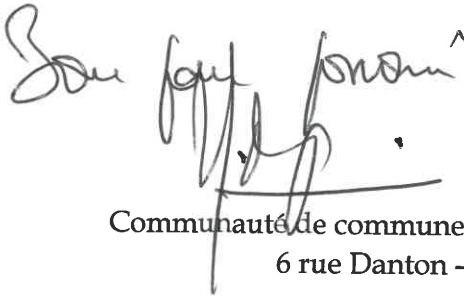 Bon pour
Communauté de commune
6 rue Danton -